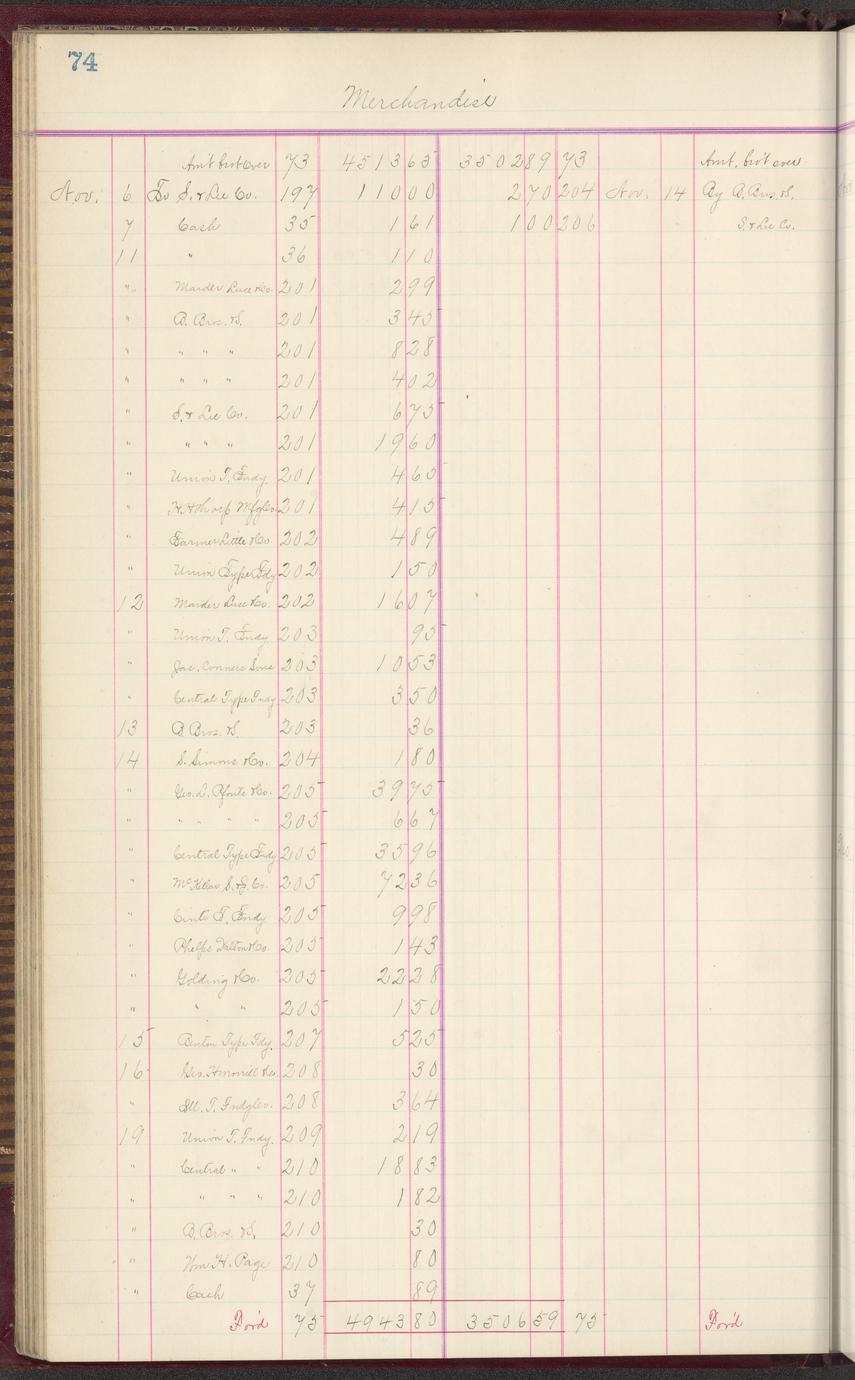 74
Merchandise
Am't bro't over 73 4513 65 3502 89 73 Amt. bro't over
Nov. 6 To S. & Lee Co. 197 110 00 2 70 204 Nov. 14 By B. Bros. & S.
7 Cash 35 1 61 1 00 206 S. & Lee Co.
11 " 36 1 10
" Marder Luce & Co. 201 2 99
" B. Bros. & S. 201 3 45
" " " " 201 8 28
" " " " 201 4 02
" S. & Lee Co. 201 6 75
" " " " 201 19 60
" Union T. Fndy 201 4 65
" H. H. Thorp Mfg Co. 201 4 15
" Farmer Little & Co 202 4 89
" Union Type Fdy 202 1 50
12 Marder Luce & Co. 202 16 07
" Union T. Fndy 203 95
" Jas. Conners Sons 203 10 53
" Central Type Fndy 203 3 50
13 B Bros. & S. 203 36
14 S. Simons & Co. 204 1 80
" Geo. L. & Co. 205 39 75
" " " " " 205 6 67
" Central Type Fndy 205 35 96
" McKellar S. & J. Co. 205 72 36
" Cinti T. Fndy 205 9 98
" Phelps Dalton & Co 205 1 43
" Golding & Co. 205 22 28
" " " 205 1 50
15 Benton Type Fdy. 207 5 25
16 Geo. H. Morrill & Co. 208 30
" Ill. T. Fndg Co. 208 3 64
19 Union T. Fndy. 209 2 19
" Central " " 210 18 83
" " " " 210 1 82
" B. Bros. & S. 210 30
" Wm H. Page 210 80
" Cash 37 89
For'd 75 4943 80 3506 59 75 For'd